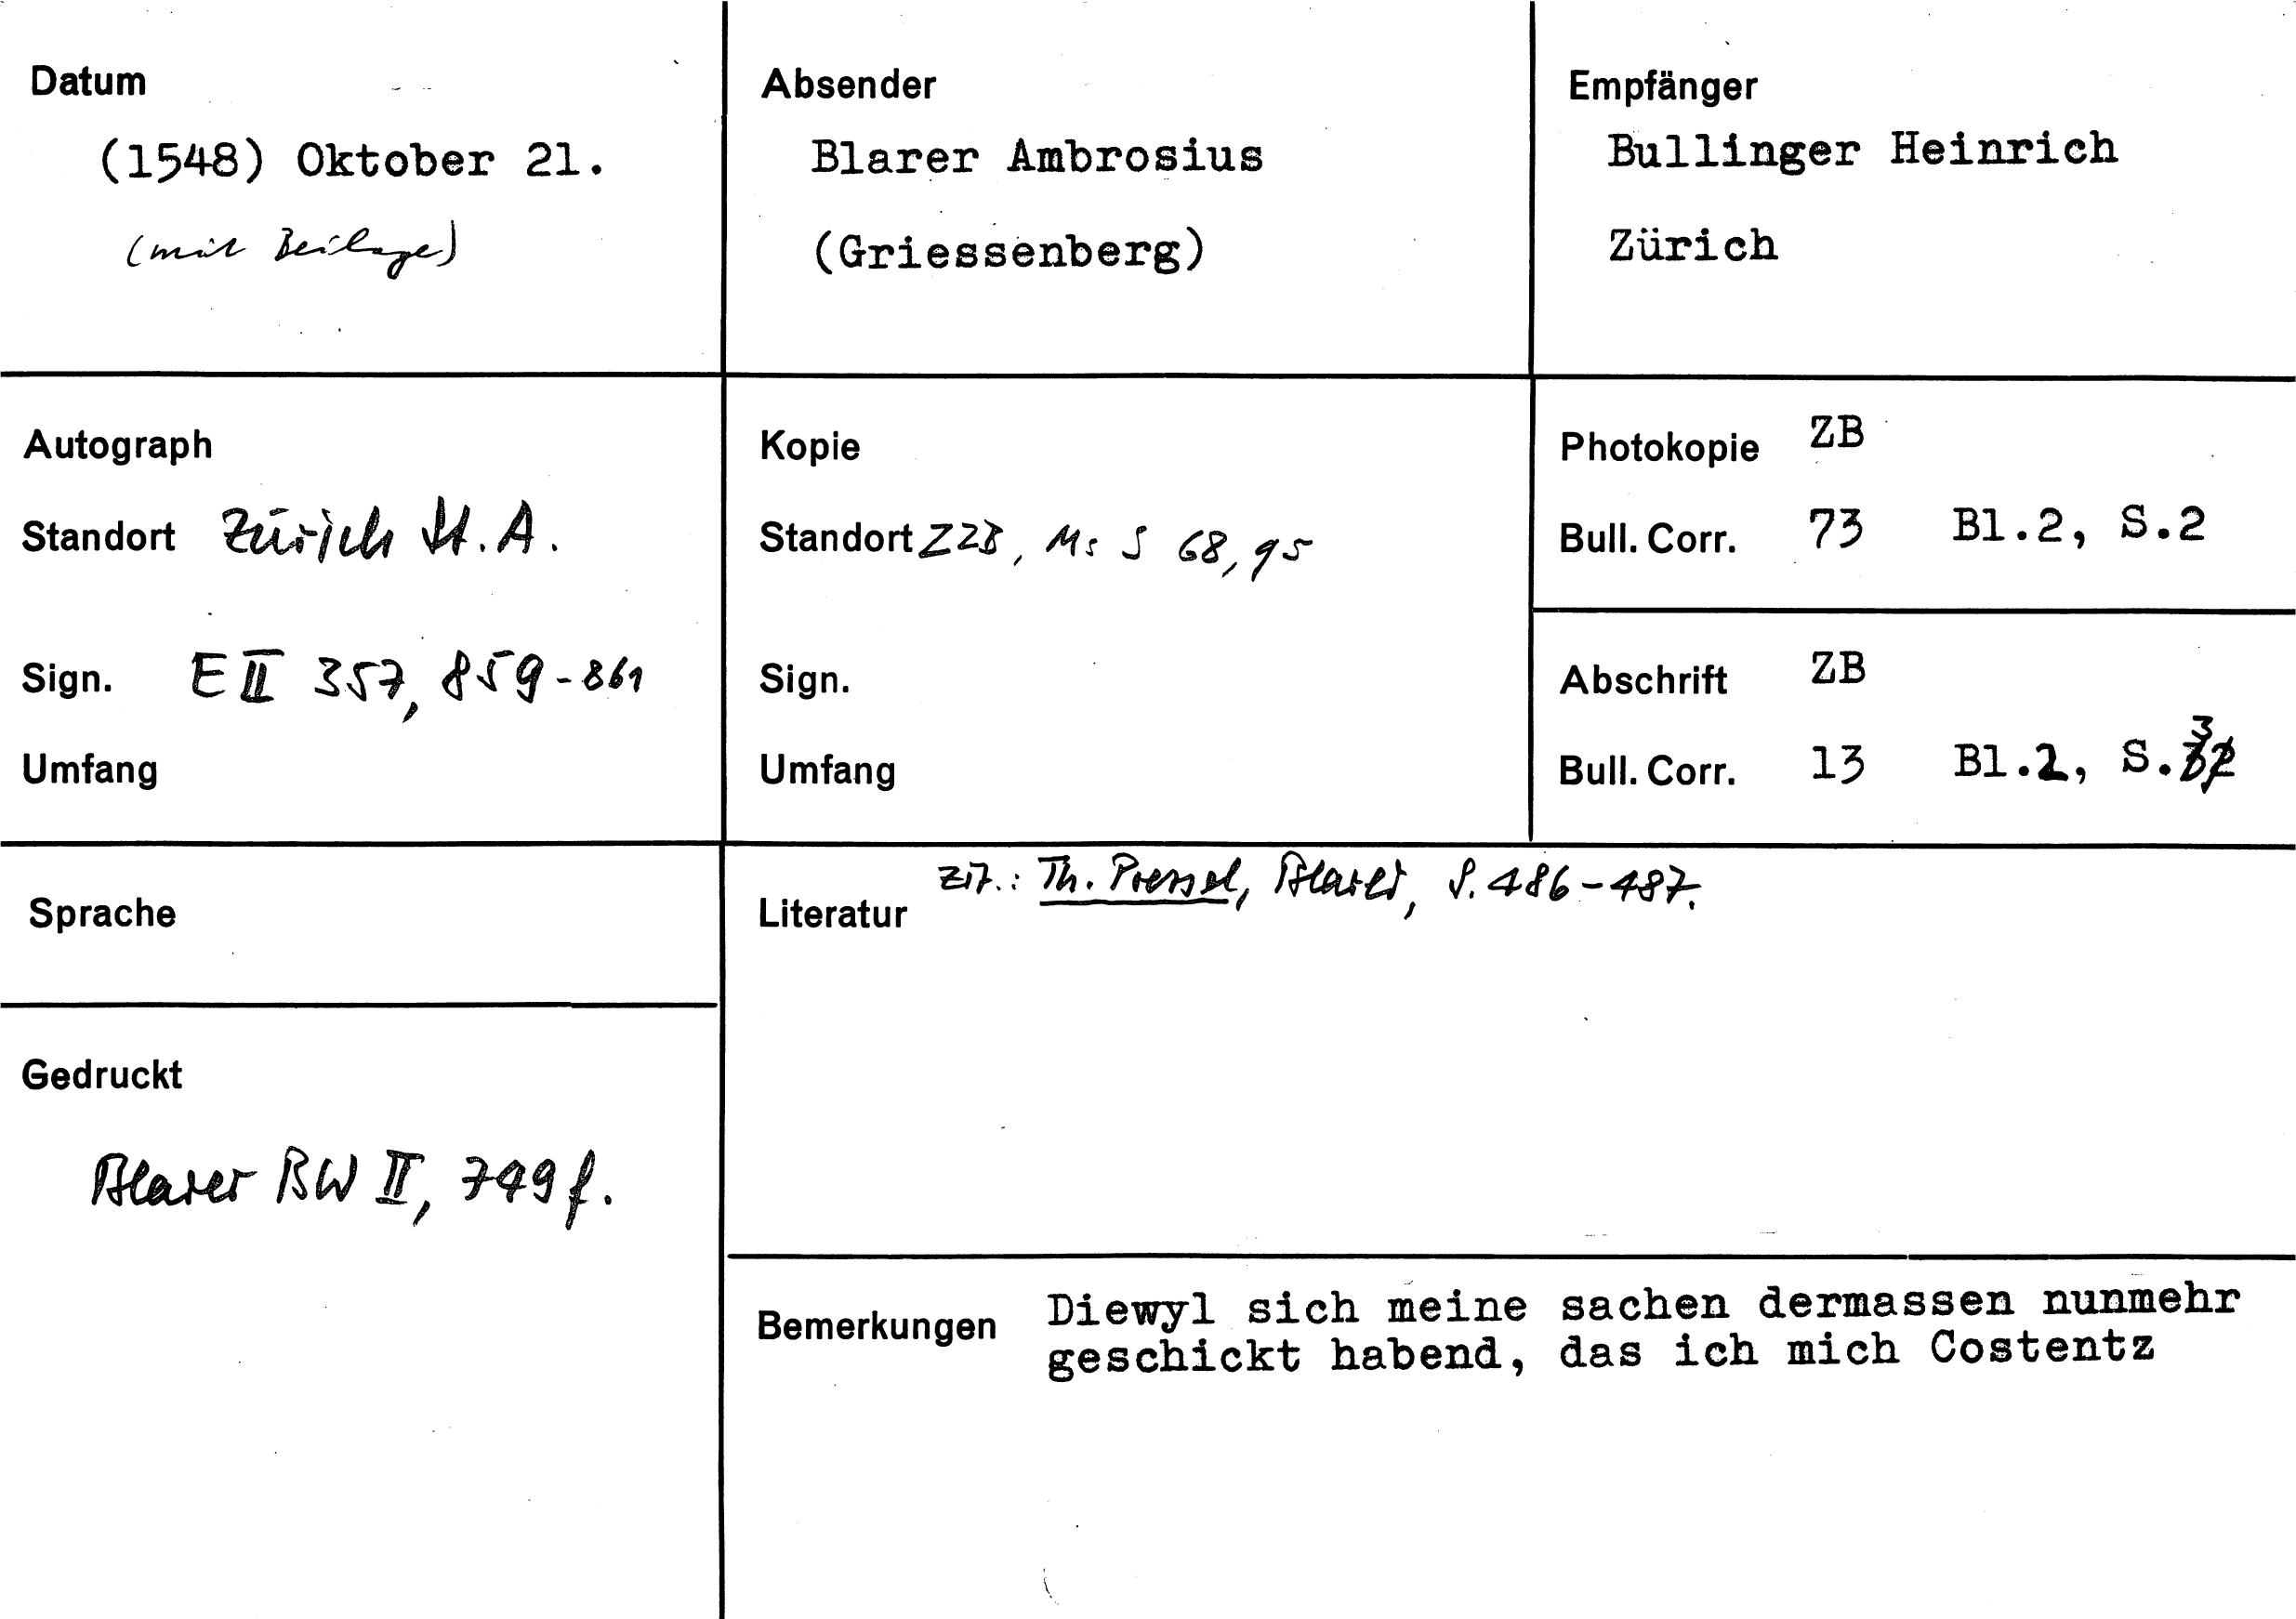 Datum
(1548) Oktober 21.
(mit Beilage)
Absender
Blarer Ambrosius
(Griessenberg)
Empfänger
Bullinger Heinrich
Zürich
Autograph
Standort Zürich St.A.
Sign. E II 357, 859-861
Umfang
Kopie
Standort ZZB, Ms S 68, 95
Sign.
Umfang
Photokopie ZB
Bull. Corr. 73 Bl.2, S.2
Abschrift ZB
Bull. Corr. 13 Bl.2, S.3
Sprache
Gedruckt
Blarer BW II, 749f.
Literatur zit.: Th. Pressel, Blarer, S. 486-487.
Bemerkungen Diewyl sich meine sachen dermassen nunmehr
geschickt habend, das ich mich Costentz